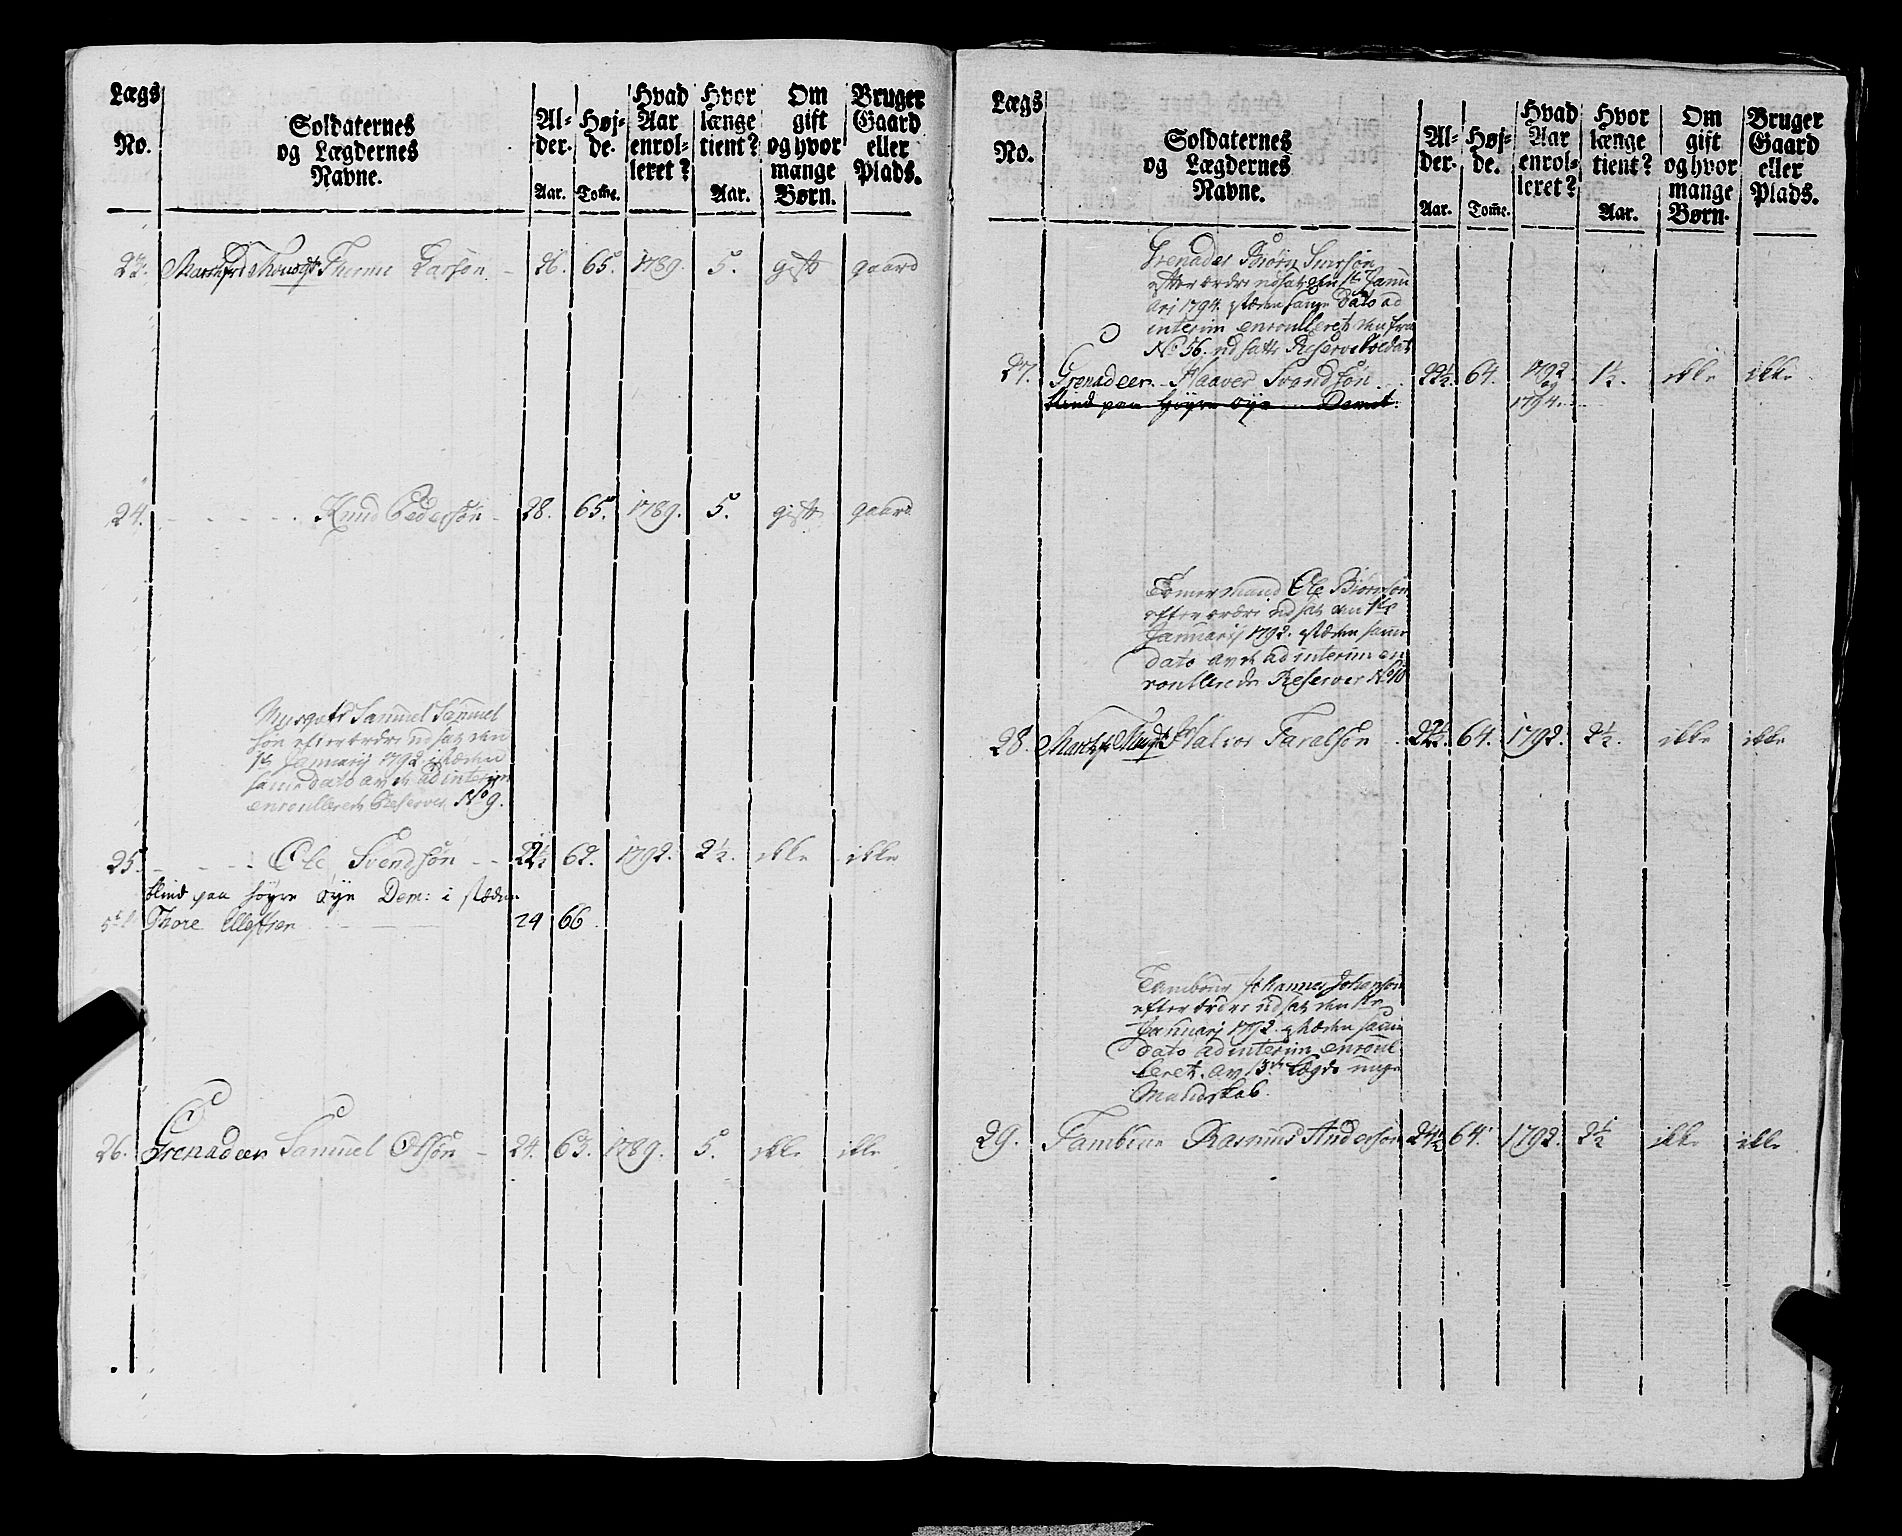 Lægs No. | Soldaternes og Lægdernes Navne. | Al-der. Aar. | Høj-de. Tom̄e. | Hvad Aar enrol-leret? | Hvor længe tient? Aar. | Om gift og hvor mange Børn. | Bruger Gaard eller Plads.
23. Larsøn - 26. 65. 1789. 5. gift gaard
24. - - - - - Knud Pedersøn - 28. 65. 1789. 5. gift gaard
Musqvetr Samuel Samuel
søn efter ordre udsat den
1ste Januarij 1792 i stæden
samme dato av de ad interim
enroullerede Reserver No 9.
25. - - - - Ole Svendsøn - - 22½ 62. 1792. 2½. ikke ikke
blind paa høyre øye Dem: i stæden
Thore Ellefsen - - - 24 66
26. Grenadeer Samuel Olsøn - 24. 63. 1789. 5. ikke ikke
Lægs No. | Soldaternes og Lægdernes Navne. | Al-der. Aar. | Høj-de. Tom̄e. | Hvad Aar enrol-leret? | Hvor længe tient? Aar. | Om gift og hvor mange Børn. | Bruger Gaard eller Plads.
Grenadeer Biørn
efter ordre udsat den 1ste Janu
arj 1794. i stæden samme Dato ad
interim enroulleret den fra
No 56. udsatte Reserve Soldat
27. Grenadeer Haaver Svendsøn - 22½. 64. 1792 og 1½. ikke ikke
blind paa høyre øye - Demit: 1794.
Tømermand Ole Biørnsøn
efter ordre udsat den 1ste
Januarij 1792. i stæden samme
dato av de ad interim en
roullerede Reserver No 10
28. Halvor Taralsøn - 22½. 64. 1792. 2½. ikke ikke
Tambour Johannes Johansøn
efter ordre udsat den 1ste
Januarj 1792. i stæden samme
dato ad interim enroul
leret av 3de Lægds unge
Mandskab.
29. Tambour Rasmus Andersøn 24½ 64. 1792. 2½ ikke ikke